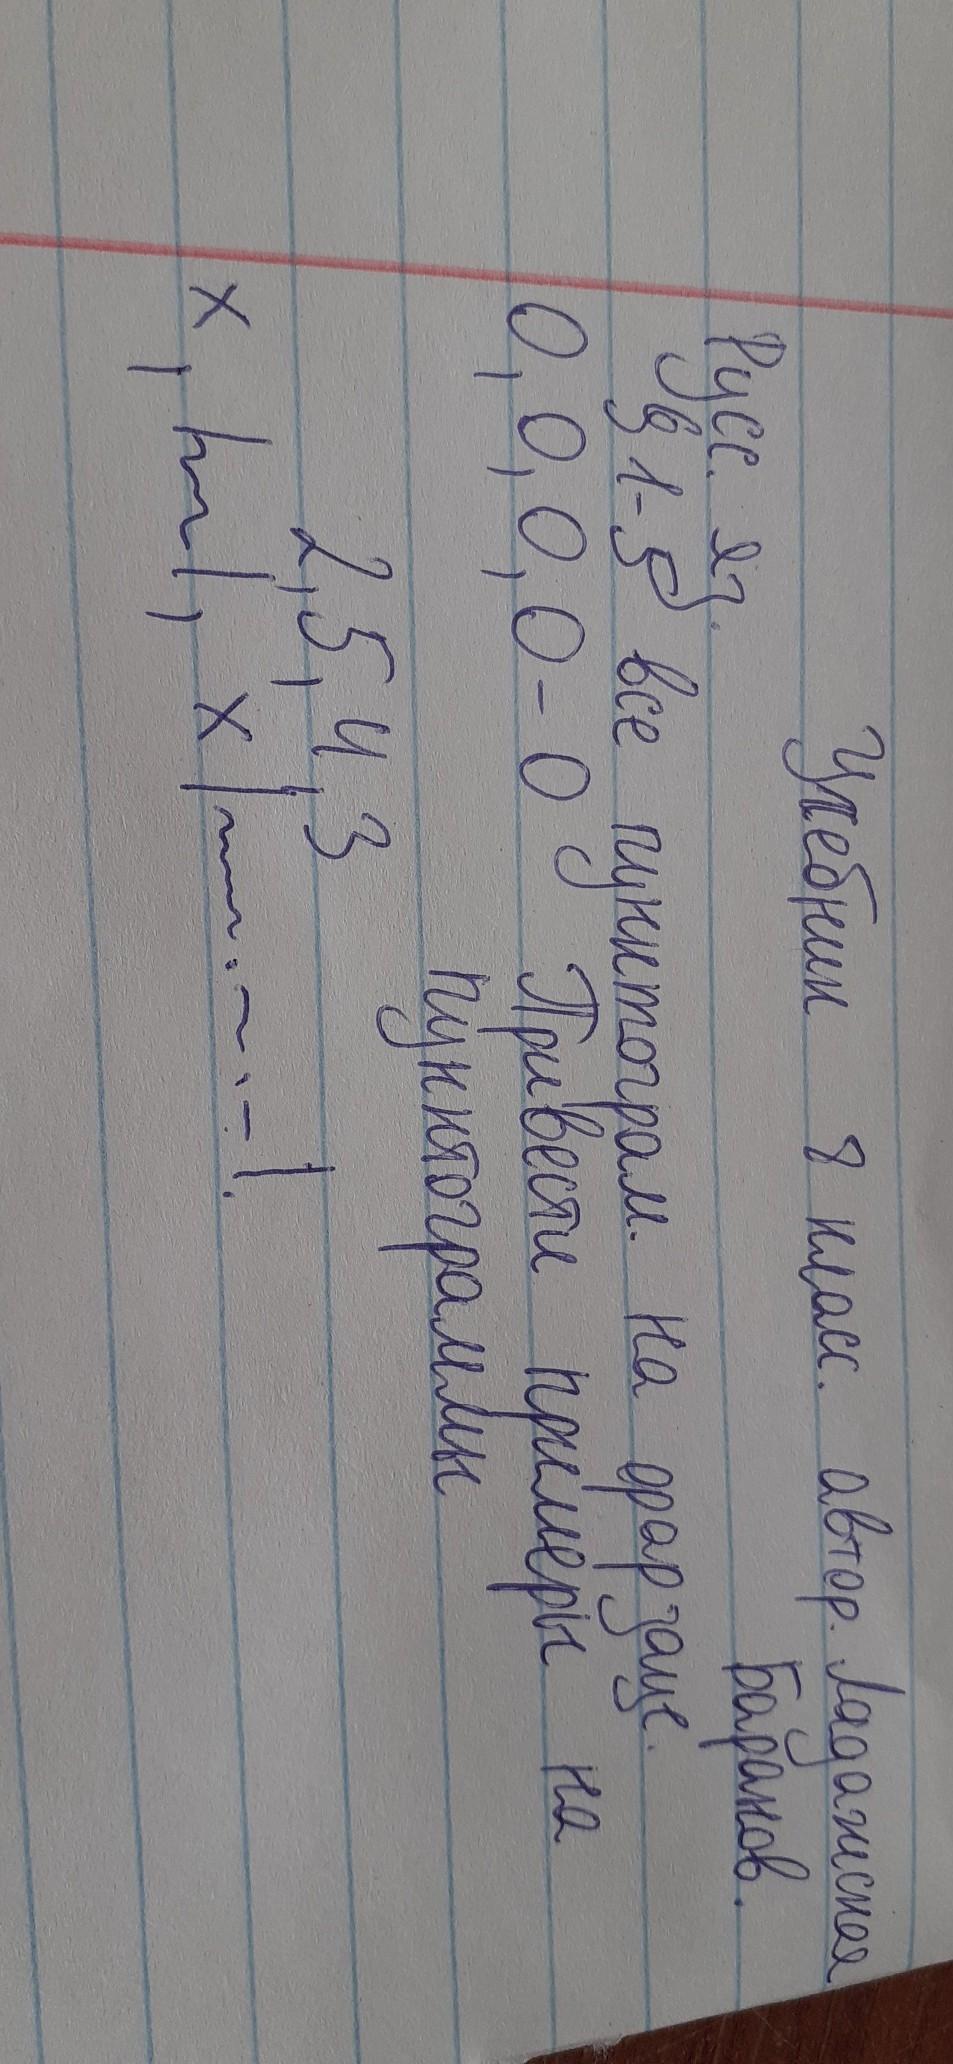 Учебник 8 класс. автор. Ладажская
Баранов.
Русс. яз.
1-5 все пунктограм. На форзаце.
О, О, О, О - О Привести примеры на
пунктограммы
2, 5, 4, 3